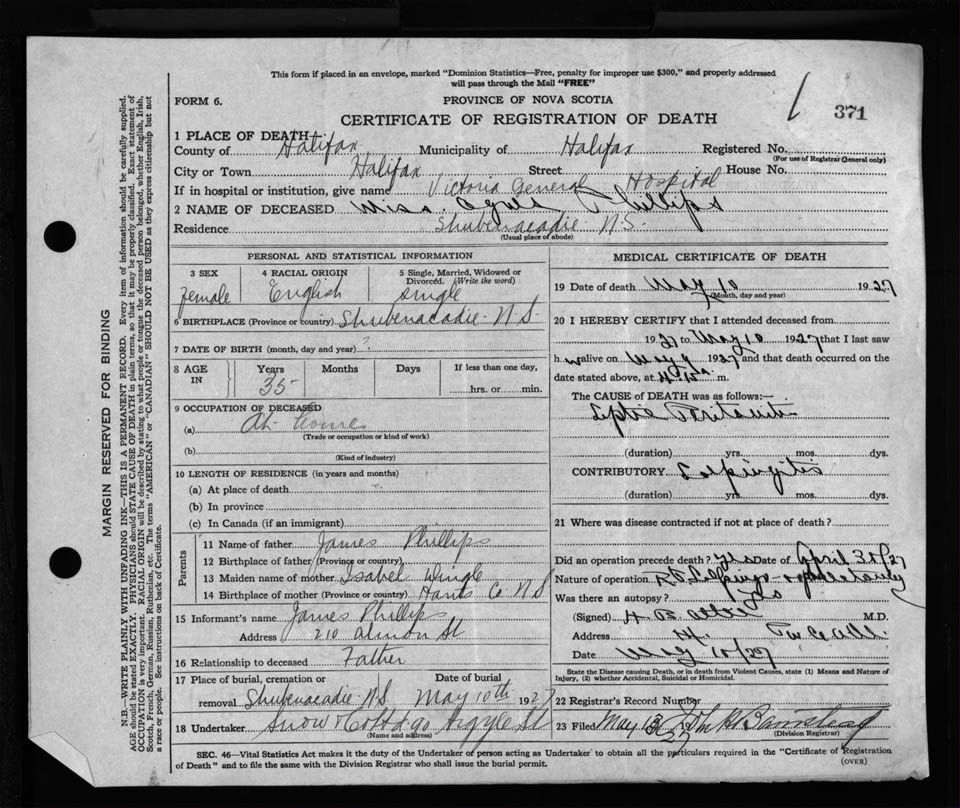 This form if placed in an envelope, marked "Dominion Statistics—Free, penalty for improper use $300," and properly addressed
will pass through the Mail "FREE"
FORM 6.
PROVINCE OF NOVA SCOTIA
371
CERTIFICATE OF REGISTRATION OF DEATH
1 PLACE OF DEATH—
County of Halifax Municipality of Halifax Registered No.
(For use of Registrar General only)
City or Town Halifax Street House No.
If in hospital or institution, give name Victoria General Hospital
2 NAME OF DECEASED Miss Phillips
Residence Shubenacadie N.S.
(Usual place of abode)
PERSONAL AND STATISTICAL INFORMATION
3 SEX 4 RACIAL ORIGIN 5 Single, Married, Widowed or Divorced. (Write the word)
Female English Single
6 BIRTHPLACE (Province or country) Shubenacadie N.S.
7 DATE OF BIRTH (month, day and year) ?
8 AGE IN Years Months Days If less than one day,
35 hrs. or min.
9 OCCUPATION OF DECEASED
(a) At home
(Trade or occupation or kind of work)
(b)
(Kind of industry)
10 LENGTH OF RESIDENCE (in years and months)
(a) At place of death
(b) In province
(c) In Canada (if an immigrant)
Parents
11 Name of father James Phillips
12 Birthplace of father (Province or country)
13 Maiden name of mother Isabel
14 Birthplace of mother (Province or country) Hants Co. N.S
15 Informant's name James Phillips
Address 210 Almon St
16 Relationship to deceased Father
17 Place of burial, cremation or removal Date of burial
Shubenacadie N.S May 10th 1927
18 Undertaker Snow & Co Ltd 90 Argyle St
(Name and address)
MEDICAL CERTIFICATE OF DEATH
19 Date of death May 10 1927
(Month, day and year)
20 I HEREBY CERTIFY that I attended deceased from
19 to May 10 1927 that I last saw
h alive on May 9 1927 and that death occurred on
date stated above, at m.
The CAUSE of DEATH was as follows:—
Septic Peritonitis
(duration) yrs. mos. dys.
CONTRIBUTORY Salpingitis
(duration) yrs. mos. dys.
21 Where was disease contracted if not at place of death?
Did an operation precede death? yes Date of April 30/27
Nature of operation
Was there an autopsy?
(Signed) H. B. M.D.
Address
Date May 10/27
State the Disease causing Death, or in death from Violent Causes, state (1) Means and Nature of
Injury, (2) whether Accidental, Suicidal or Homicidal.
22 Registrar's Record Number
23 Filed May
(Division Registrar)
SEC. 46—Vital Statistics Act makes it the duty of the Undertaker or person acting as Undertaker to obtain all the particulars required in the "Certificate of Registration
of Death" and to file the same with the Division Registrar who shall issue the burial permit.
(OVER)
MARGIN RESERVED FOR BINDING
N.B.—WRITE PLAINLY WITH UNFADING INK—THIS IS A PERMANENT RECORD. Every item of information should be carefully supplied.
AGE should be stated EXACTLY. PHYSICIANS should STATE CAUSE OF DEATH in plain terms, so that it may be properly classified. Exact statement of
OCCUPATION is very important. RACIAL ORIGIN will be described by stating to what people or tongue the deceased person belonged, whether English, Irish,
Scotch, French, German, Russian, Ruthenian, etc. The terms "AMERICAN" or "CANADIAN" SHOULD NOT BE USED as they express citizenship but not
a race or people. See instructions on back of Certificate.